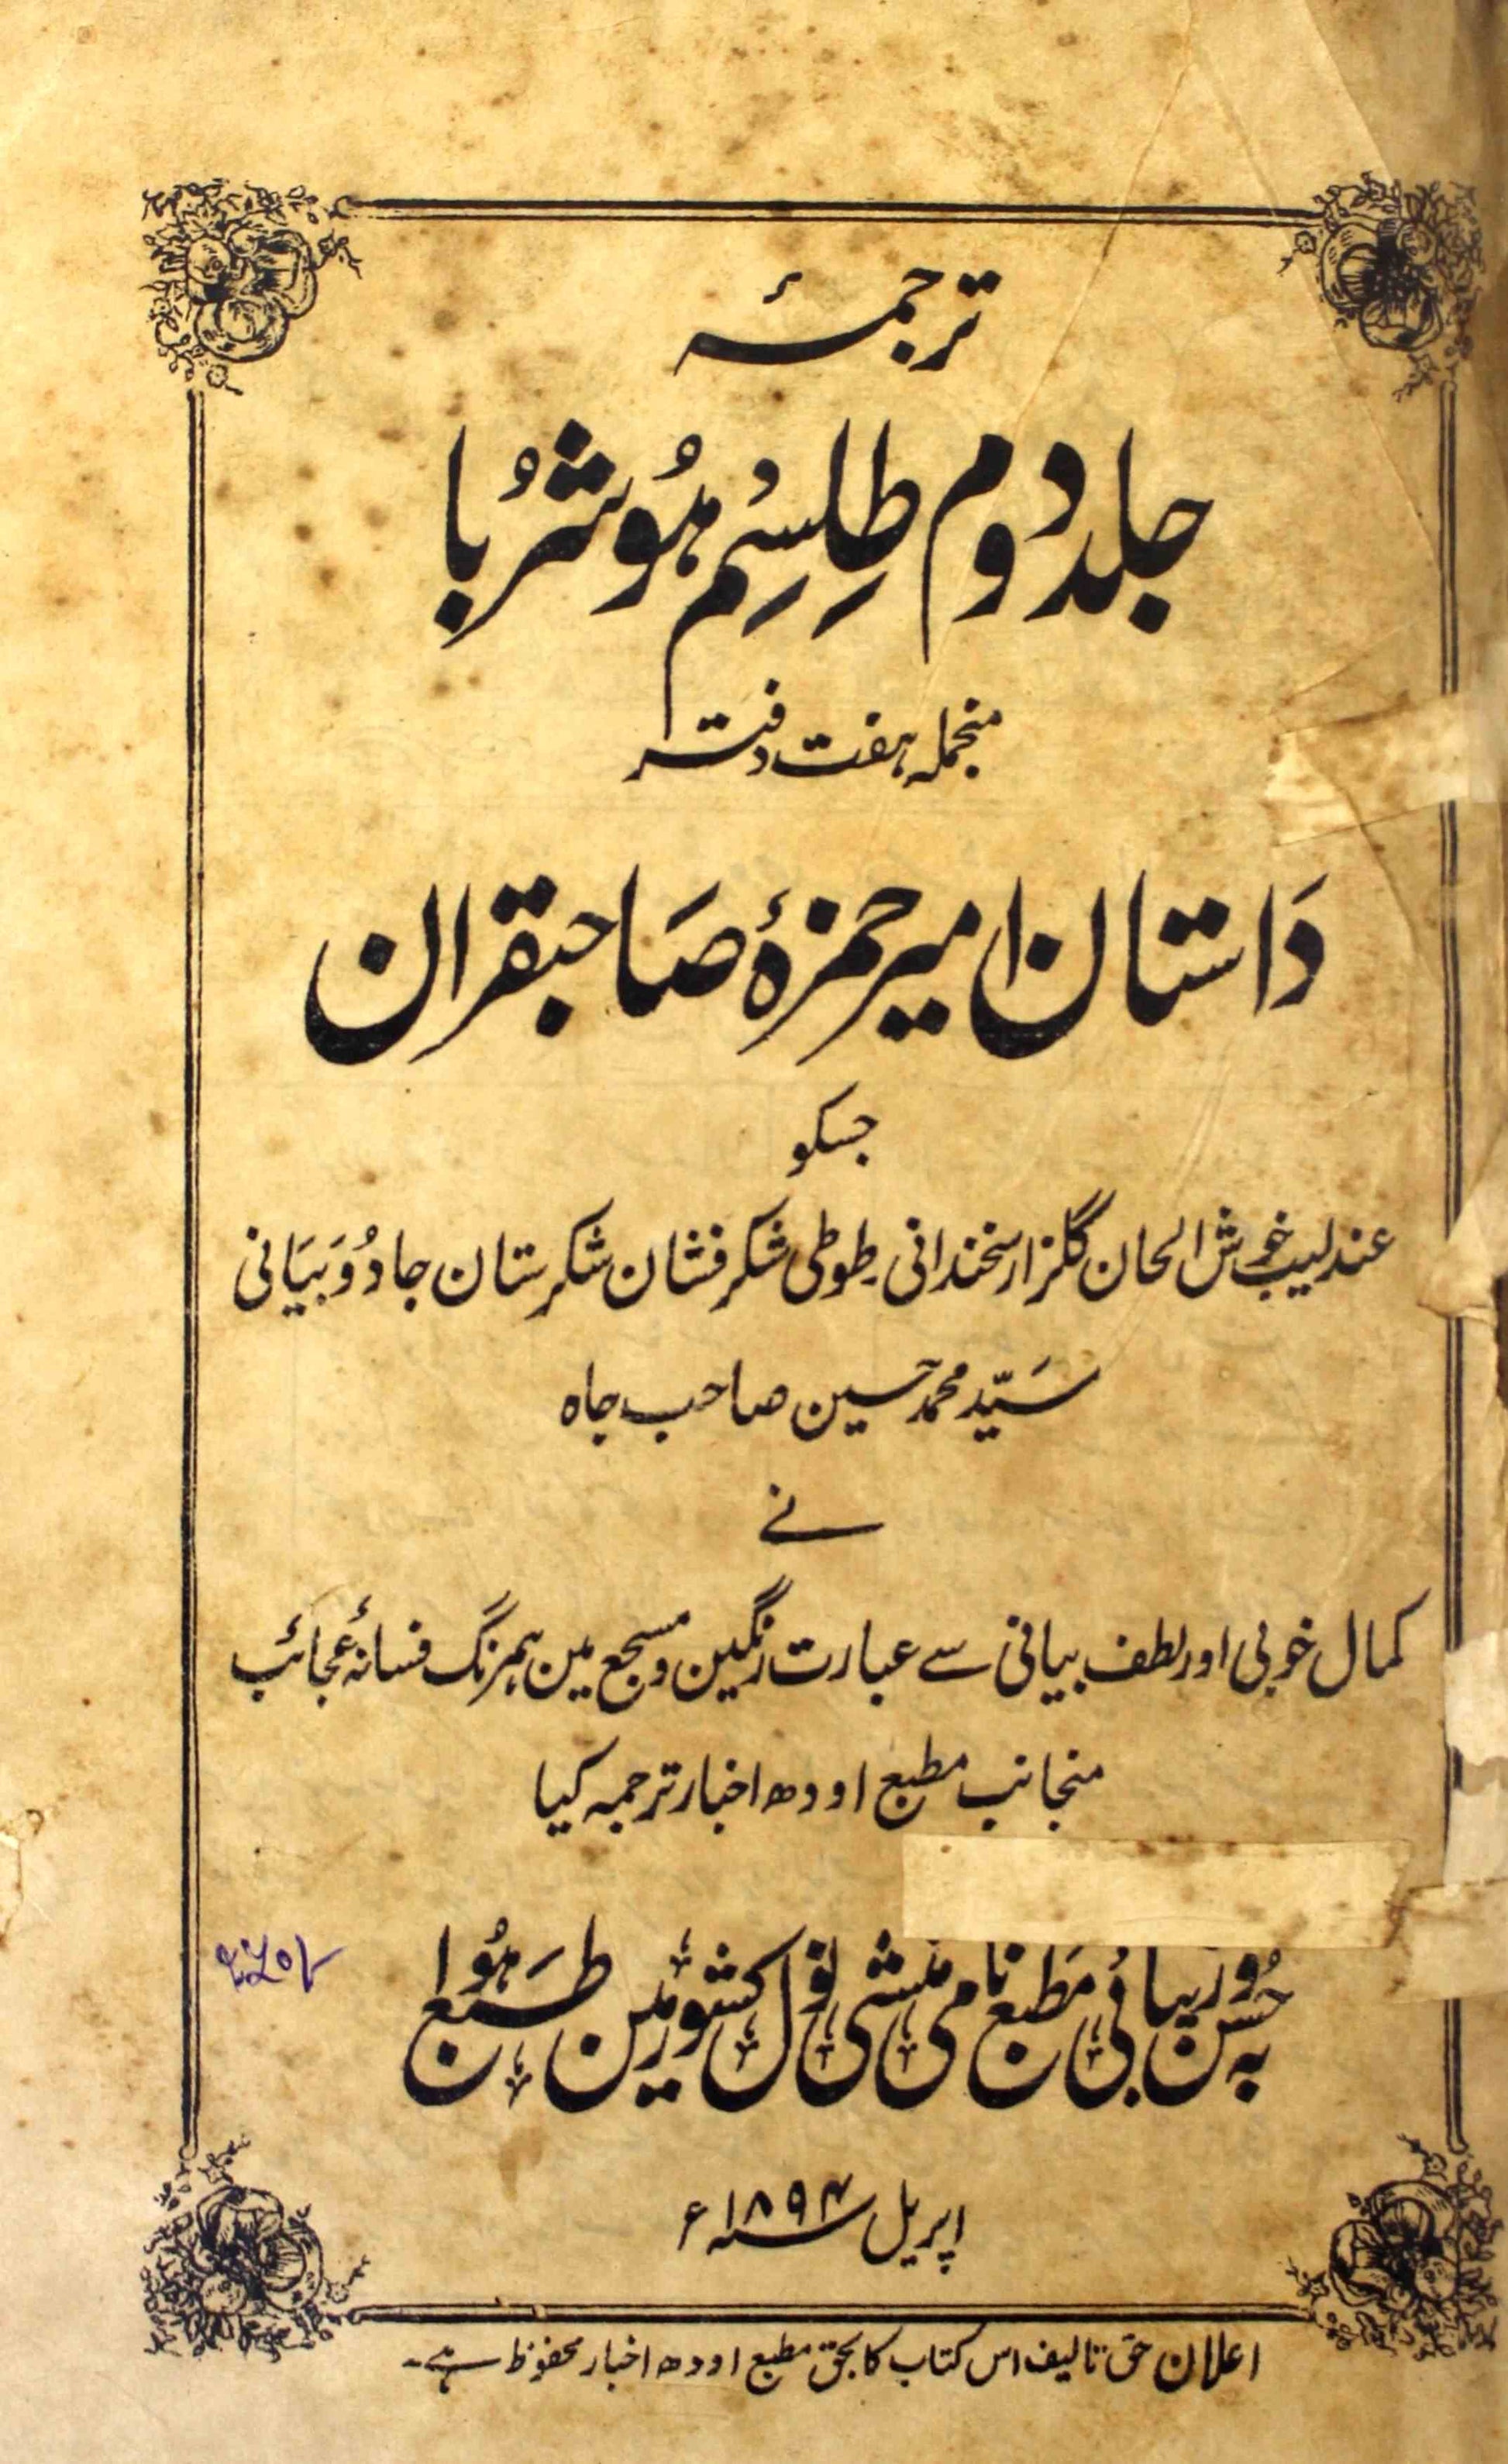 ترجمۂ
جلد دوم طِلِسْمِ ہُوشرُبا
منجملہ ہفت دفتر
داستان امیر حمزۂ صاحبقران
جسکو
عندلیب خوش الحان گلزار سخندانی طوطی شکر فشان شکرستان جادُو بَیَانی
سَیّد محمد حسین صاحب جاہ
نے
کمال خوبی اور لطف بیانی سے عبارت رنگین و مسجع مین ہمرنگ فسانۂ عجائب
منجانب مطبع اودھ اخبار ترجمہ کیا
بہ حُسن و زیبائی مطبع نامی منشی نول کشور مین طبع ہُوا
اپریل سنہ ۱۸۹۴ء
اعلان حق تالیف اس کتاب کا بحق مطبع اودھ اخبار محفوظ ہے۔